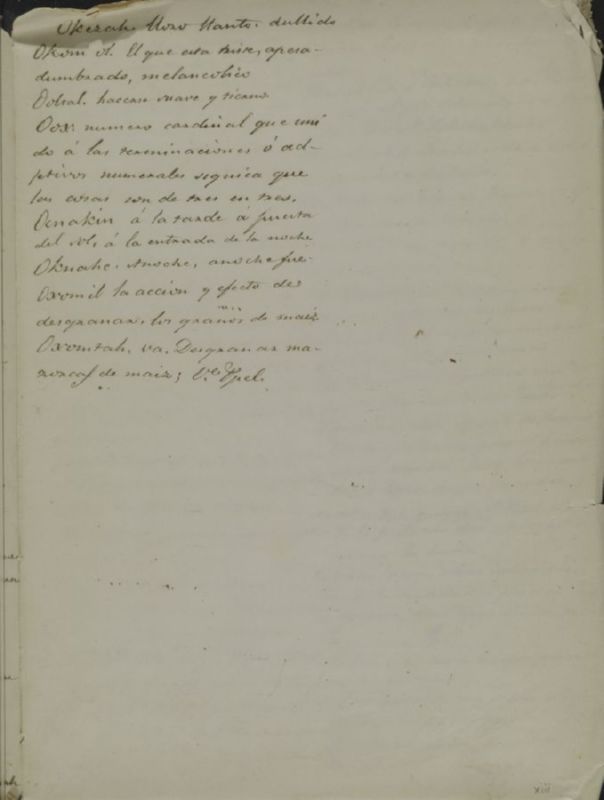 Okezah. Lloro llanto. aullido
Okom ol. El que esta triste, apesa-
dumbrado, melancolico
Oobal. haccan suave y
Oox: numero cardinal que uni
do á las terminaciones ó ad-
jetivos numerales signica que
las cosas son de tres en tres.
Ocnakin á la tarde á puerta
del sol, á la entrada de la noche
Oknahe. Anoche, anoche fue.
Oxomil la accion y efecto de
desgranar, los granos de maiz
Oxomtah, va. Desgranar ma-
zorcas de maiz; Ve.
xiii